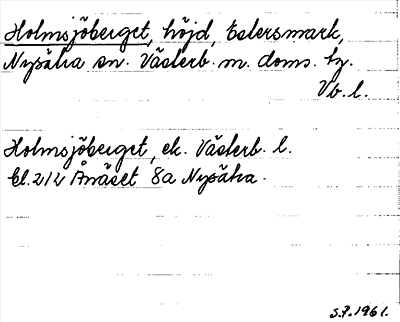 Holmsjöberget, höjd, Estersmark,
Nysätra sn. Västerb. m. doms. tg.
Vb. l.
Holmsjöberget, ek. Västerb. l.
Bl. 212 Ånäset 8a Nysätra.
S.P. 1961.